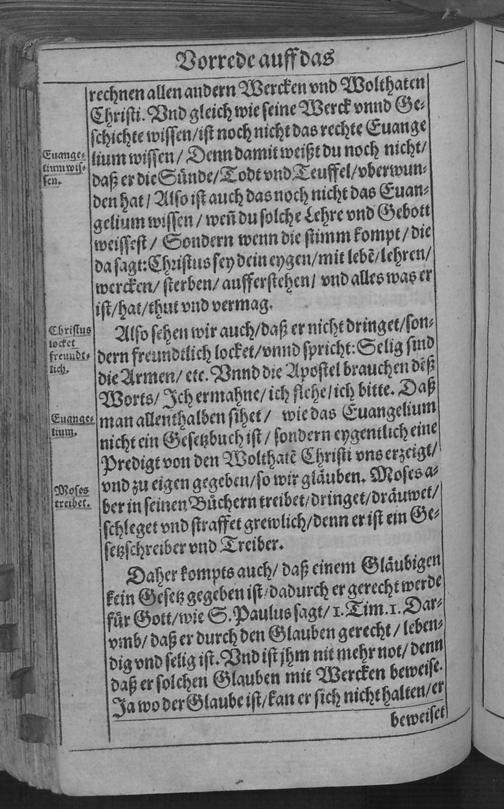 Vorrede auff das
rechnen allen andern Wercken vnd Wolthaten
Christi. Vnd gleich wie seine Werck vnnd Ge-
schichte wissen/ ist noch nicht das rechte Euange
Euange-
lium wis-
sen.
lium wissen/ Denn damit weißt du noch nicht/
daß er die Sünde/ Todt vnd Teuffel/ vberwun-
den hat/ Also ist auch das noch nicht das Euan-
gelium wissen/ weñ du solche Lehre vnd Gebott
weissest/ Sondern wenn die stimm kompt/ die
da sagt: Christus sey dein eygen/ mit lebẽ/ lehren/
wercken/ sterben/ aufferstehen/ vnd alles was er
ist/ hat/ thut vnd vermag.
Christus
locket
freundt-
lich.
Also sehen wir auch/ daß er nicht dringet/ son-
dern freundtlich locket/ vnnd spricht: Selig sind
die Armen/ etc. Vnnd die Apostel brauchen deß
Worts/ Ich ermahne/ ich flehe/ ich bitte. Daß
Euange-
lium.
man allenthalben sihet/ wie das Euangelium
nicht ein Gesetzbuch ist/ sondern eygentlich eine
Predigt von den Wolthatẽ Christi vns erzeigt/
vnd zu eigen gegeben/ so wir gläuben. Moses a-
Moses
treibet.
ber in seinen Büchern treibet/ dringet/ dräuwet/
schleget vnd straffet grewlich/ denn er ist ein Ge-
setzschreiber vnd Treiber.
Daher kompts auch/ daß einem Gläubigen
kein Gesetz gegeben ist/ dadurch er gerecht werde
für Gott/ wie S. Paulus sagt/ 1. Tim. 1. Dar-
vmb/ daß er durch den Glauben gerecht/ leben-
dig vnd selig ist. Vnd ist jhm nit mehr not/ denn
daß er solchen Glauben mit Wercken beweise.
Ja wo der Glaube ist/ kan er sich nicht halten/ er
beweiset